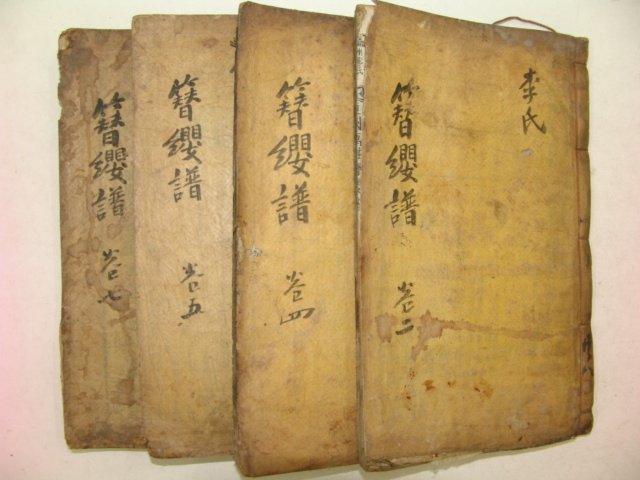 李氏
簪纓譜 卷二
簪纓譜 卷四
簪纓譜 卷五
簪纓譜 卷七